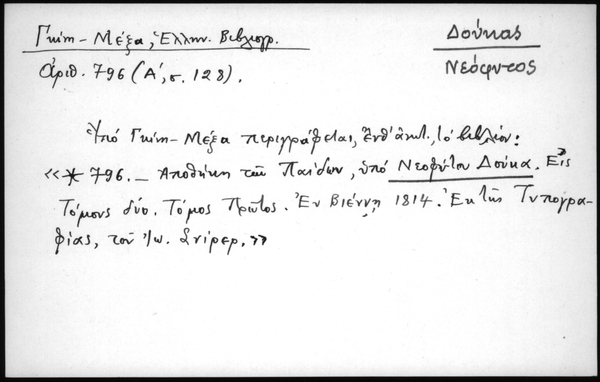 Γκίνη – Μέξα, Ἑλλην. Βιβλιογρ.
Δούκας
Νεόφυτος
ἀριθ. 796 (Α΄, σ. 128).
Ὑπό Γκίνη – Μέξα περιγράφεται, ἔνθ' ἀνωτ., τό βιβλίον:
«* 796. – Ἀποθήκη τῶν Παίδων, ὑπό Νεοφύτου Δούκα. Εἰς
Τόμους δύο. Τόμος Πρῶτος. Ἐν Βιέννῃ 1814. Ἐκ τῆς Τυπογρα-
φίας, τοῦ Ἰω. Σνίρερ.»